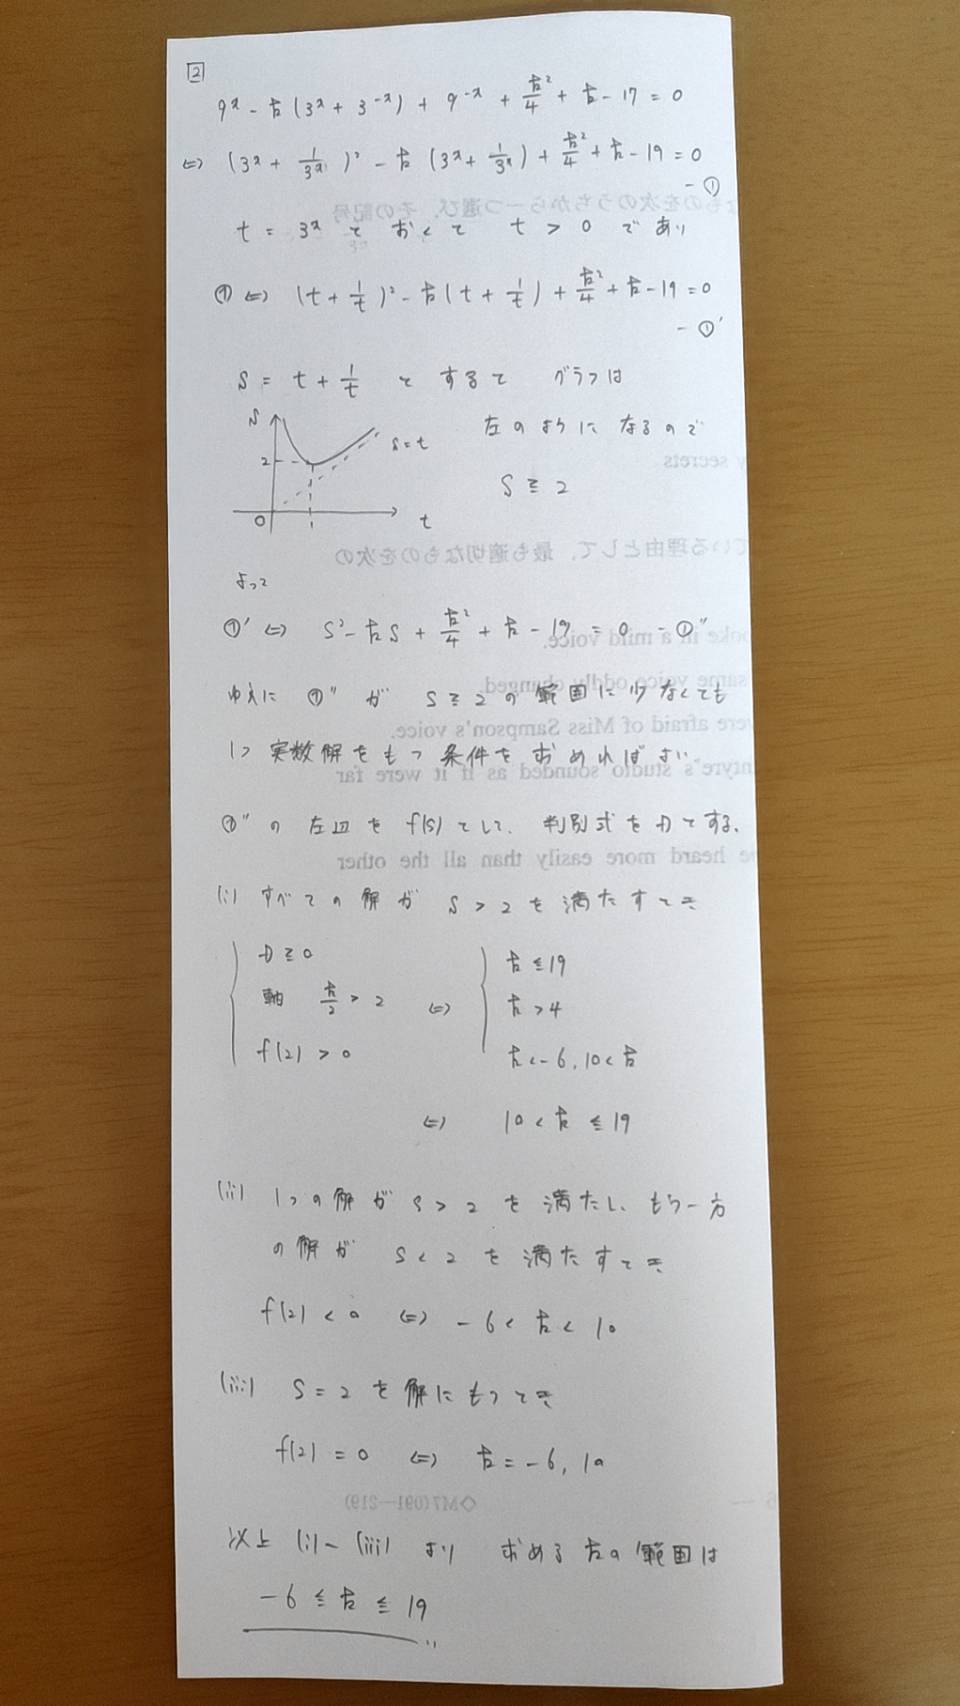 2
9^x - k(3^x + 3^{-x}) + 9^{-x} + k²/4 + k - 17 = 0
⇔ (3^x + 1/3^x)² - k(3^x + 1/3^x) + k²/4 + k - 19 = 0
- ①
t = 3^x とおくと t > 0 であり
① ⇔ (t + 1/t)² - k(t + 1/t) + k²/4 + k - 19 = 0
- ①'
S = t + 1/t とすると グラフは
左のようになるので
S
2
S = t
O
t
S ≧ 2
よって
①' ⇔ S² - kS + k²/4 + k - 19 = 0 - ①''
ゆえに ①'' が S ≧ 2 の範囲に少なくても
1つ実数解をもつ条件を求めればよい
①'' の左辺を f(S) として、判別式を D とする.
(i) すべての解が S > 2 を満たすとき
D ≧ 0
軸 k/2 > 2 ⇔
f(2) > 0
k ≦ 19
k > 4
k < -6, 10 < k
⇔ 10 < k ≦ 19
(ii) 1つの解が S > 2 を満たし、もう一方
の解が S < 2 を満たすとき
f(2) < 0 ⇔ -6 < k < 10
(iii) S = 2 を解にもつとき
f(2) = 0 ⇔ k = -6, 10
以上 (i)~(iii) より 求める k の範囲は
-6 ≦ k ≦ 19